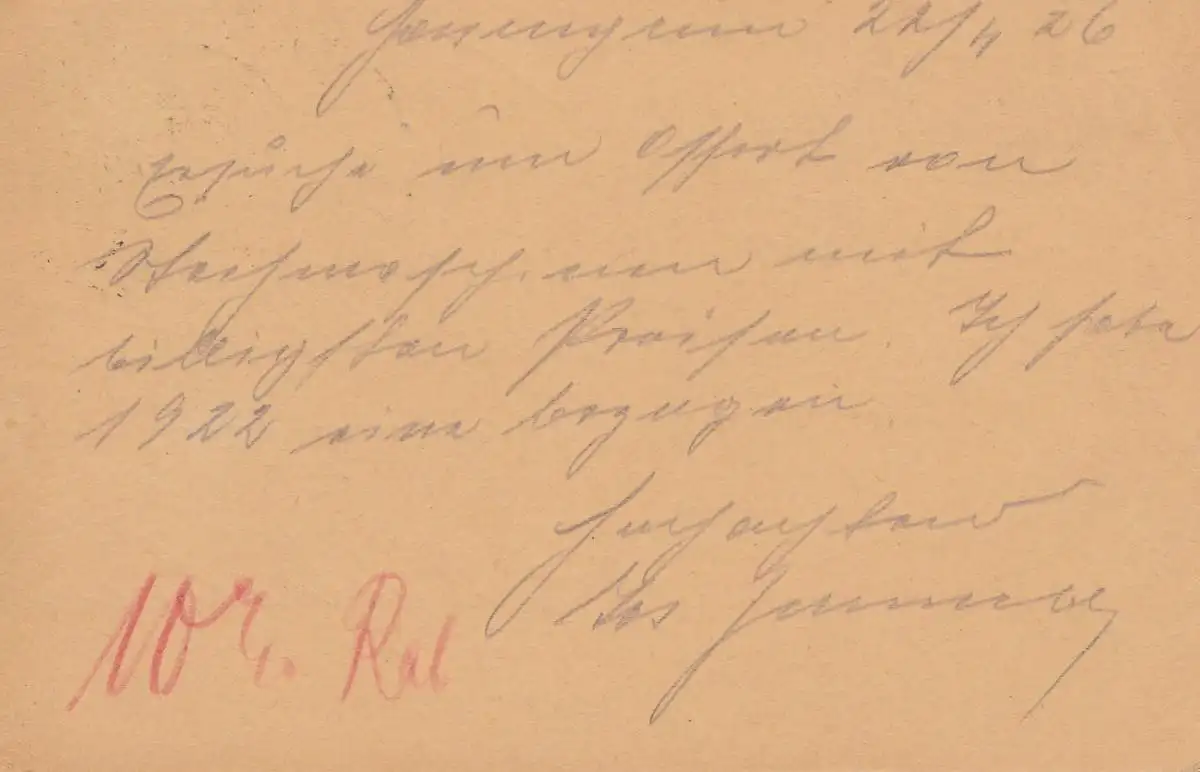 22/4 26
Ersuche um Offert von
mit
billigsten Preisen. Ich habe
1922 eine bezogen
Hochachtend
10% Rab